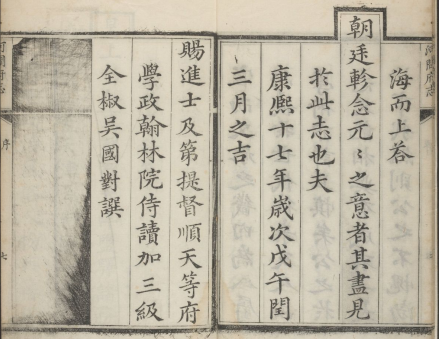 海而上荅
朝廷軫念元〻之意者其盡見
於此志也夫
康熙十七年歲次戊午閏
三月之吉
賜進士及第提督順天等府
學政翰林院侍讀加三級
全椒吳國對譔
序
七